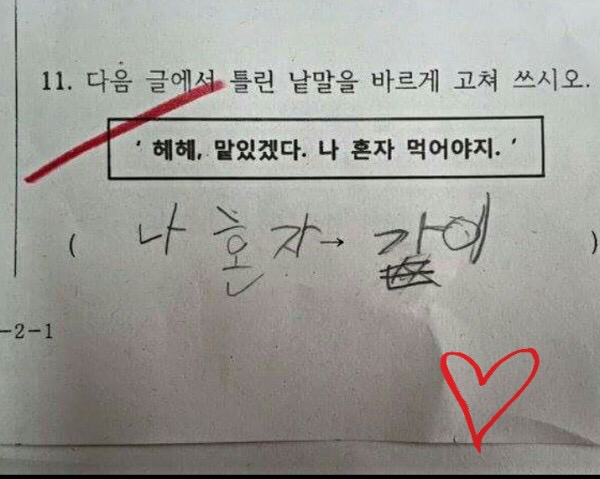 11. 다음 글에서 틀린 낱말을 바르게 고쳐 쓰시오.
‘ 헤헤, 맡있겠다. 나 혼자 먹어야지. ’
( 나 혼자→ 같이 )
-2-1